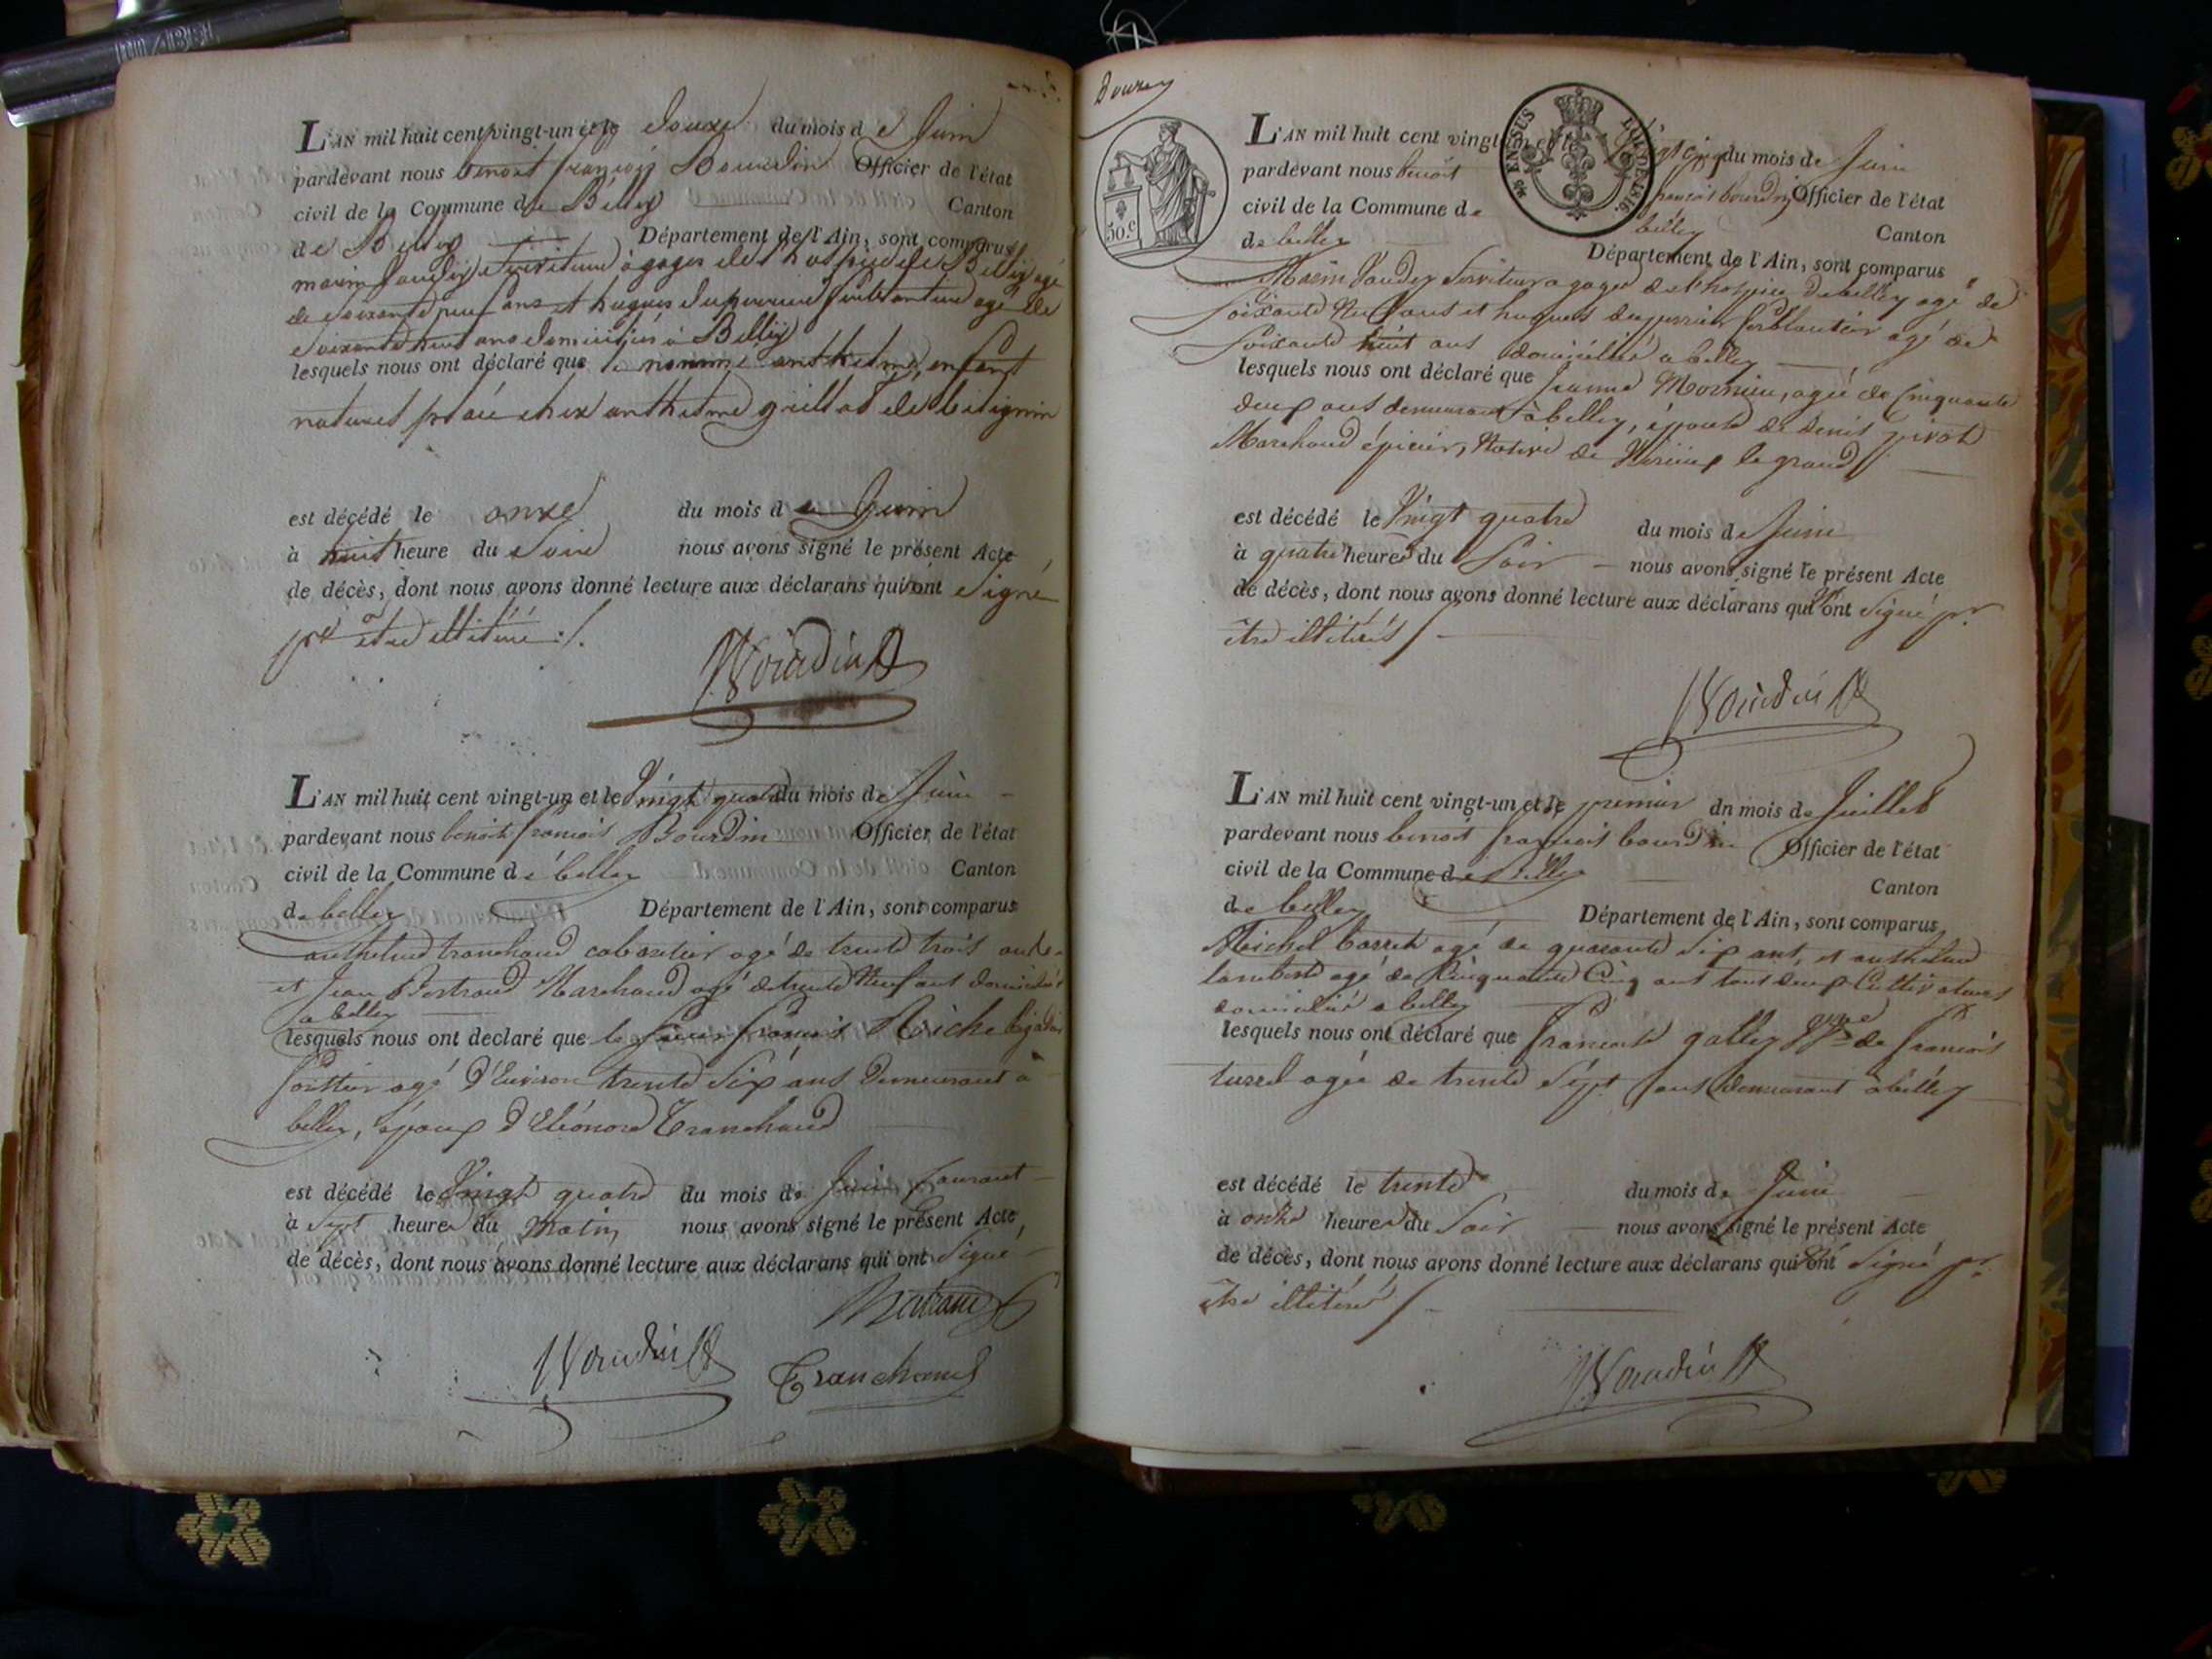 L'AN mil huit cent vingt-un et le douze du mois de Juin
pardevant nous benoit françois Bourdin Officier de l'état
civil de la Commune de Belley Canton
de Belley Département de l'Ain, sont comparus
marin serviteur à gages de l'hospice de Belley agé
de soixante neuf ans et hugues duperrier ferblantier agé de
soixante huit ans domiciliés à Belley
lesquels nous ont déclaré que le nommé anthelme, enfant
naturel placé chez anthelme grillot de bitignin
est décédé le onze du mois de Juin
à huit heure du Soir nous avons signé le présent Acte
de décès, dont nous avons donné lecture aux déclarans qui ont signé
pr être illitéré
Bourdin
L'AN mil huit cent vingt-un et le Vingt quatre du mois de Juin
pardevant nous benoit françois Bourdin Officier de l'état
civil de la Commune de belley Canton
de belley Département de l'Ain, sont comparus
anthelme tranchand cabaretier agé de trente trois ans
et Jean Bertrand Marchand agé de trente Neuf ans domiciliés
a belley
lesquels nous ont declaré que le Sieur françois Roche
agé d'Environ trente Six ans Demeurant à
belley, époux d'Eléonore Tranchand
est décédé le Vingt quatre du mois de Juin Courant
à Sept heures du Matin nous avons signé le présent Acte
de décès, dont nous avons donné lecture aux déclarans qui ont Signé
Bertrand
Bourdin Tranchand
Douze
50.c
ENSUS
L'AN mil huit cent vingt du mois de Juin
pardevant nous benoit françois bourdin Officier de l'état
civil de la Commune de belley Canton
de belley Département de l'Ain, sont comparus
Marin Serviteur a gages de l'hospice de belley agé de
Soixante Neuf ans et hugues duperrier ferblantier agé de
Soixante huit ans domiciliés a belley
lesquels nous ont déclaré que Jeanne Mornieu, agée de Cinquante
deux ans demeurant à belley, épouse de denis pivot
Marchand épicier, Native de Virieux le grand
est décédé le Vingt quatre du mois de Juin
à quatre heures du Soir nous avons signé le présent Acte
de décès, dont nous avons donné lecture aux déclarans qui ont Signé pr
être illitérés
Bourdin
L'AN mil huit cent vingt-un et le premier dn mois de Juillet
pardevant nous benoit françois bourdin Officier de l'état
civil de la Commune de belley Canton
de belley Département de l'Ain, sont comparus
Michel agé de quarante Six ans, et anthelme
lambert agé de Cinquante Cinq ans tous deux Cultivateurs
domiciliés a belley
lesquels nous ont déclaré que françoise galley de françois
agée de trente Sept ans demeurant à belley
est décédé le trente du mois de Juin
à onze heures du Soir nous avons signé le présent Acte
de décès, dont nous avons donné lecture aux déclarans qui ont Signé pr
être illitérés
Bourdin